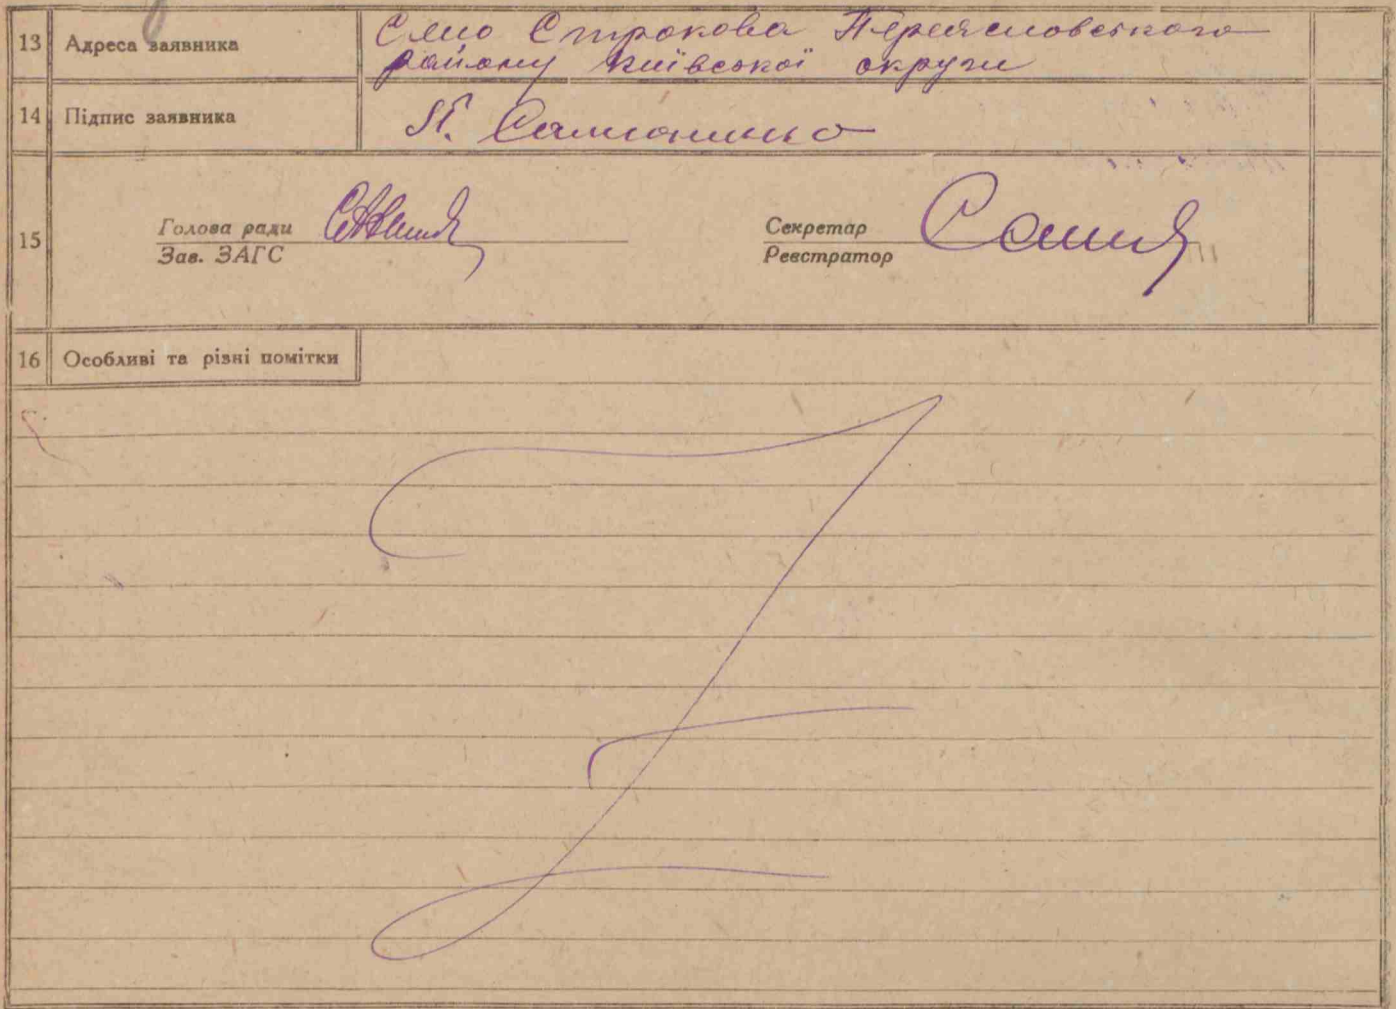 13 Адреса заявника Село Строкова Переяславського
району Київської округи
14 Підпис заявника
15 Голова ради Секретар
Зав. ЗАГС Реєстратор
16 Особливі та різні помітки